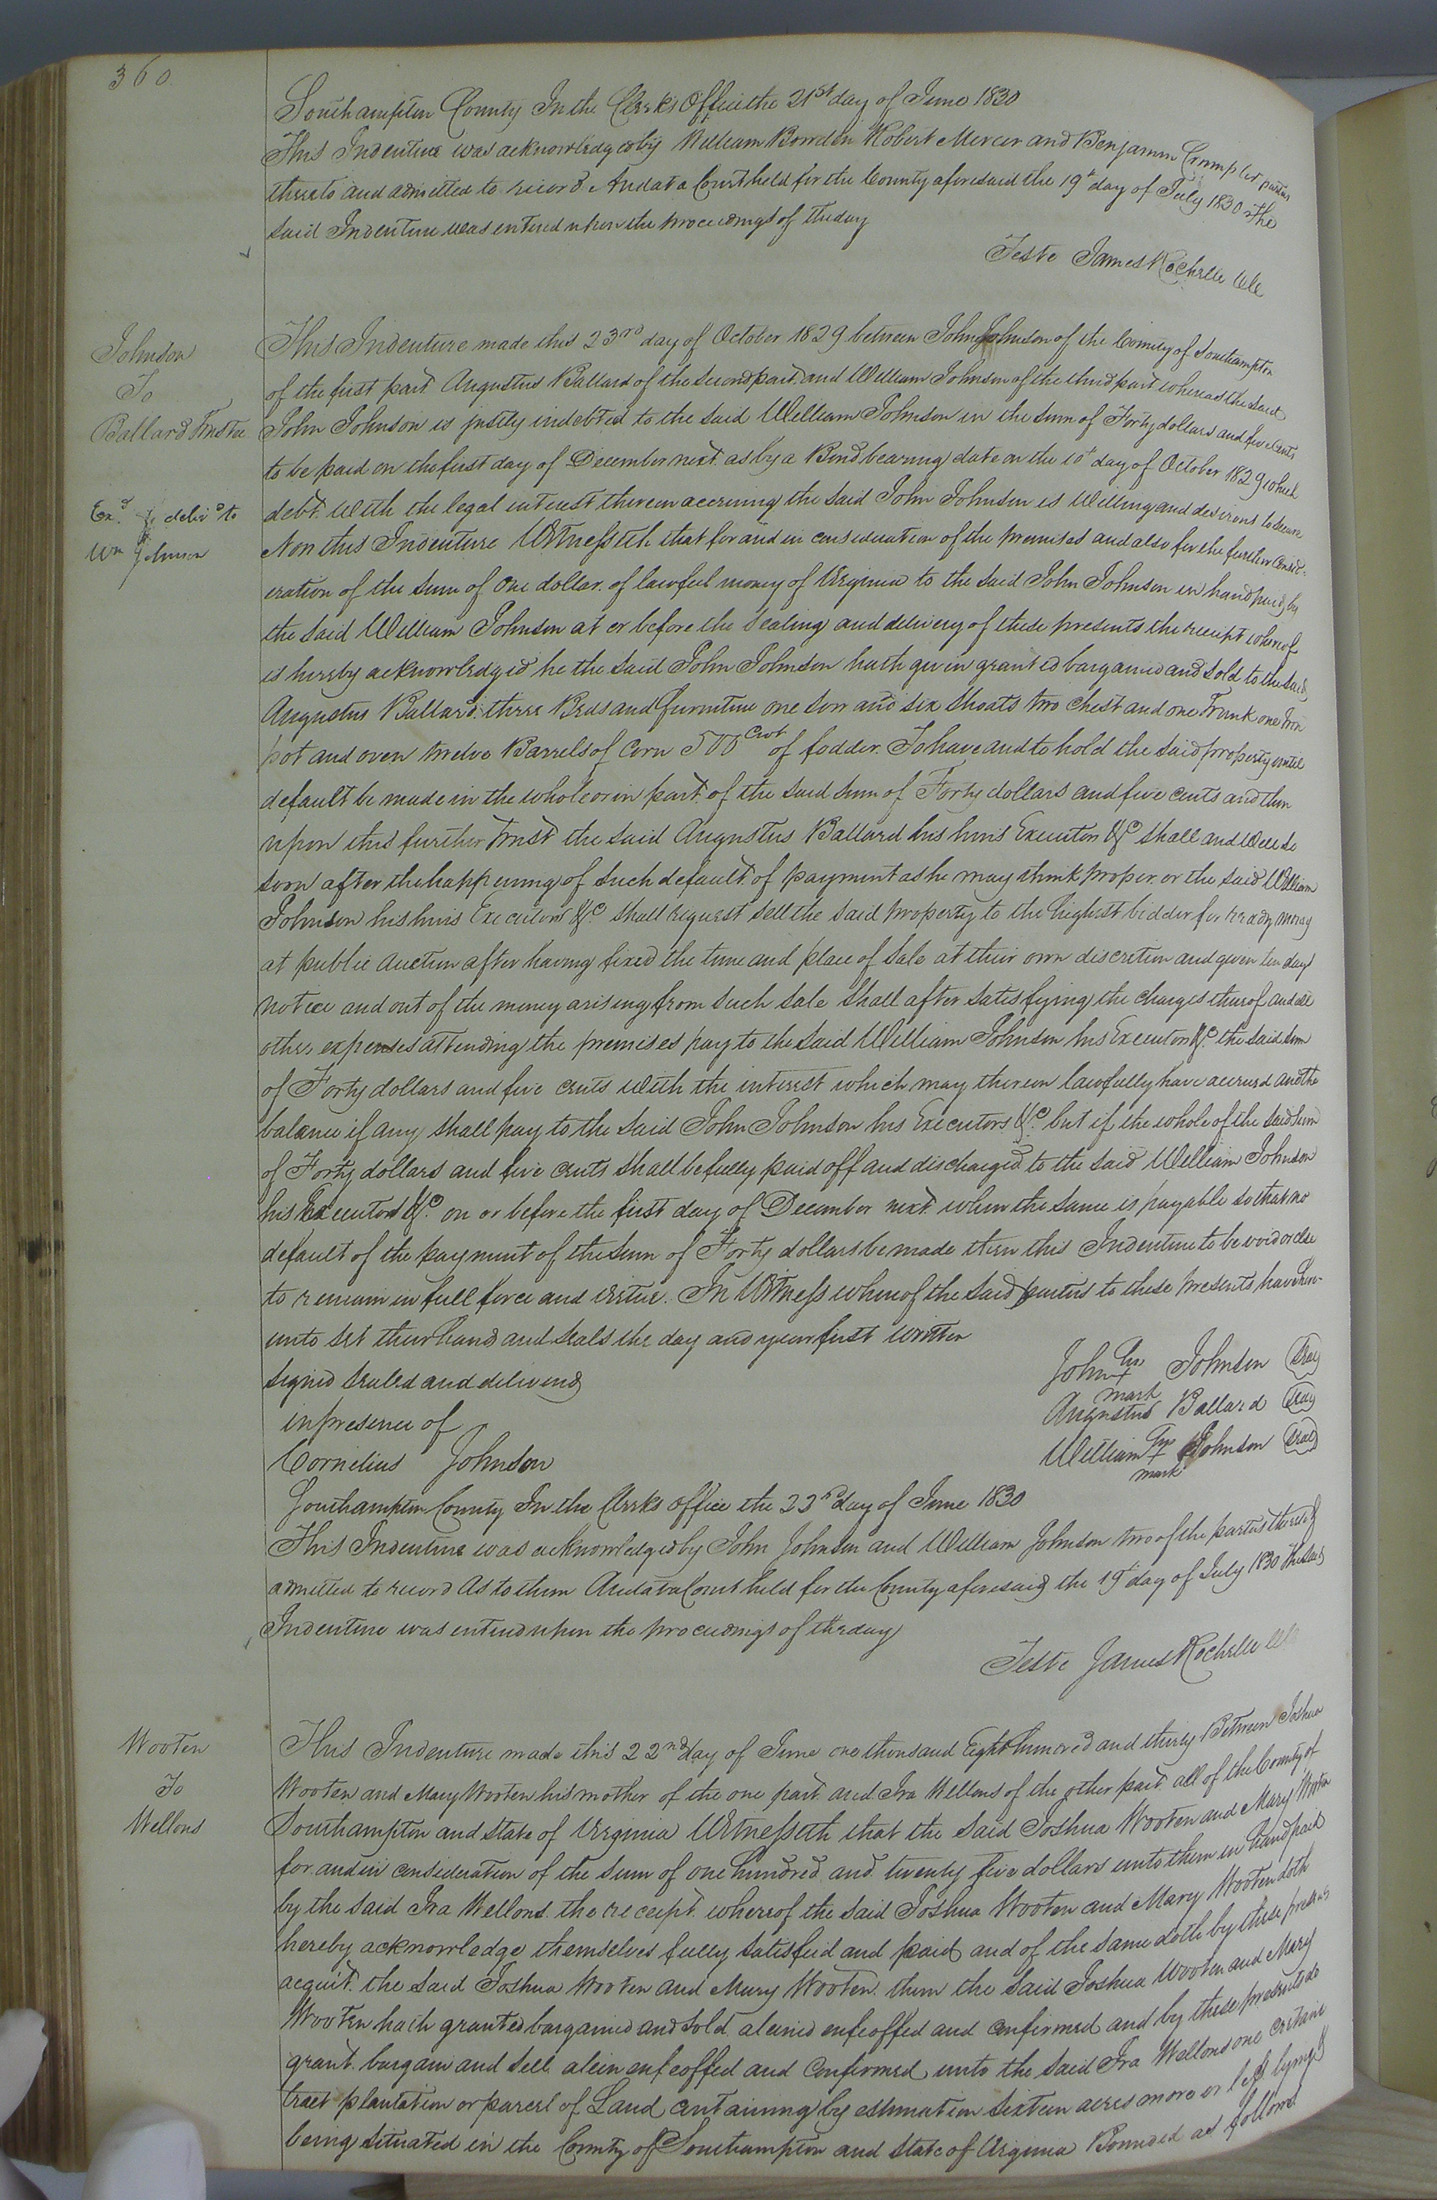 360
Southampton County In the Clerks Office the 21st day of June 1830
This Indenture was acknowledged by William Bowden Robert Mercer and Benjamin Crumpler parties
thereto and admitted to record. And at a Court held for the County aforesaid the 19t day of July 1830 the
said Indenture was entered upon the proceedings of the day
Teste James Rochelle Clk
Johnson
To
Ballard Trustee
Exd & delivd to
Wm Johnson
This Indenture made this 23rd day of October 1829 between John Johnson of the County of Southampton
of the first part Augustus Ballard of the second part and William Johnson of the third part whereas the said
John Johnson is justly indebted to the said William Johnson in the sum of Forty dollars and five cents
to be paid on the first day of December next as by a Bond bearing date on the 10t day of October 1829 which
debt with the legal interest thereon accruing the said John Johnson is Willing and desirous to secure
Now this Indenture Witnesseth that for and in consideration of the premises and also for the further consid-
eration of the sum of One dollar of lawful money of Virginia to the said John Johnson in hand paid by
the said William Johnson at or before the sealing and delivery of these presents the receipt whereof
is hereby acknowledged he the said John Johnson hath given granted bargained and sold to the said
Augustus Ballard three Beds and furniture one sow and six shoats two Chest and one Trunk one Iron
pot and oven twelve Barrels of Corn 500 Cwt of fodder. To have and to hold the said property until
default be made in the whole or in part of the said sum of Forty dollars and five cents and then
upon this further trust the said Augustus Ballard his heirs Executors &c shall and will so
soon after the happening of such default of payment as he may think proper or the said William
Johnson his heirs Executors &c shall request sell the said property to the highest bidder for ready money
at public auction after having fixed the time and place of sale at their own discretion and given ten days
notice and out of the money arising from such sale shall after satisfying the charges thereof and all
other expenses attending the premises pay to the said William Johnson his Executors &c. the said sum
of Forty dollars and five cents with the interest which may thereon lawfully have accrued and the
balance if any shall pay to the said John Johnson his Executors &c. but if the whole of the said sum
of Forty dollars and five cents shall be fully paid off and discharged to the said William Johnson
his Executors &c. on or before the first day of December next when the same is payable so that no
default of the payment of the sum of Forty dollars be made then this Indenture to be void or else
to remain in full force and virtue. In Witness whereof the said parties to these presents have here-
unto set their hands and seals the day and year first written
signed sealed and delivered
in presence of
Cornelius Johnson
John his + mark Johnson Seal
Augustus Ballard Seal
William his + mark Johnson Seal
Southampton County In the Clerks office the 22nd day of June 1830
This Indenture was acknowledged by John Johnson and William Johnson two of the parties thereto &
admitted to record As to them And at a Court held for the County aforesaid the 19t day of July 1830 the said
Indenture was entered upon the proceedings of the day
Teste James Rochelle Clk
Wooten
To
Wellons
This Indenture made this 22nd day of June one thousand Eight hundred and thirty Between Joshua
Wooten and Mary Wooten his mother of the one part and Ira Wellons of the other part all of the County of
Southampton and State of Virginia Witnesseth that the said Joshua Wooten and Mary Wooten
for and in consideration of the sum of one hundred and twenty five dollars unto them in hand paid
by the said Ira Wellons the receipt whereof the said Joshua Wooten and Mary Wooten doth
hereby acknowledge themselves fully satisfied and paid and of the same doth by these presents
acquit the said Joshua Wooten and Mary Wooten. them the said Joshua Wooten and Mary
Wooten hath granted bargained and sold aleined enfeoffed and confirmed and by these presents do
grant bargain and sell alein enfeoffed and confirmed unto the said Ira Wellons one certain
tract plantation or parcel of Land containing by estimation sixteen acres more or less lying &
being situated in the County of Southampton and State of Virginia Bounded as follows